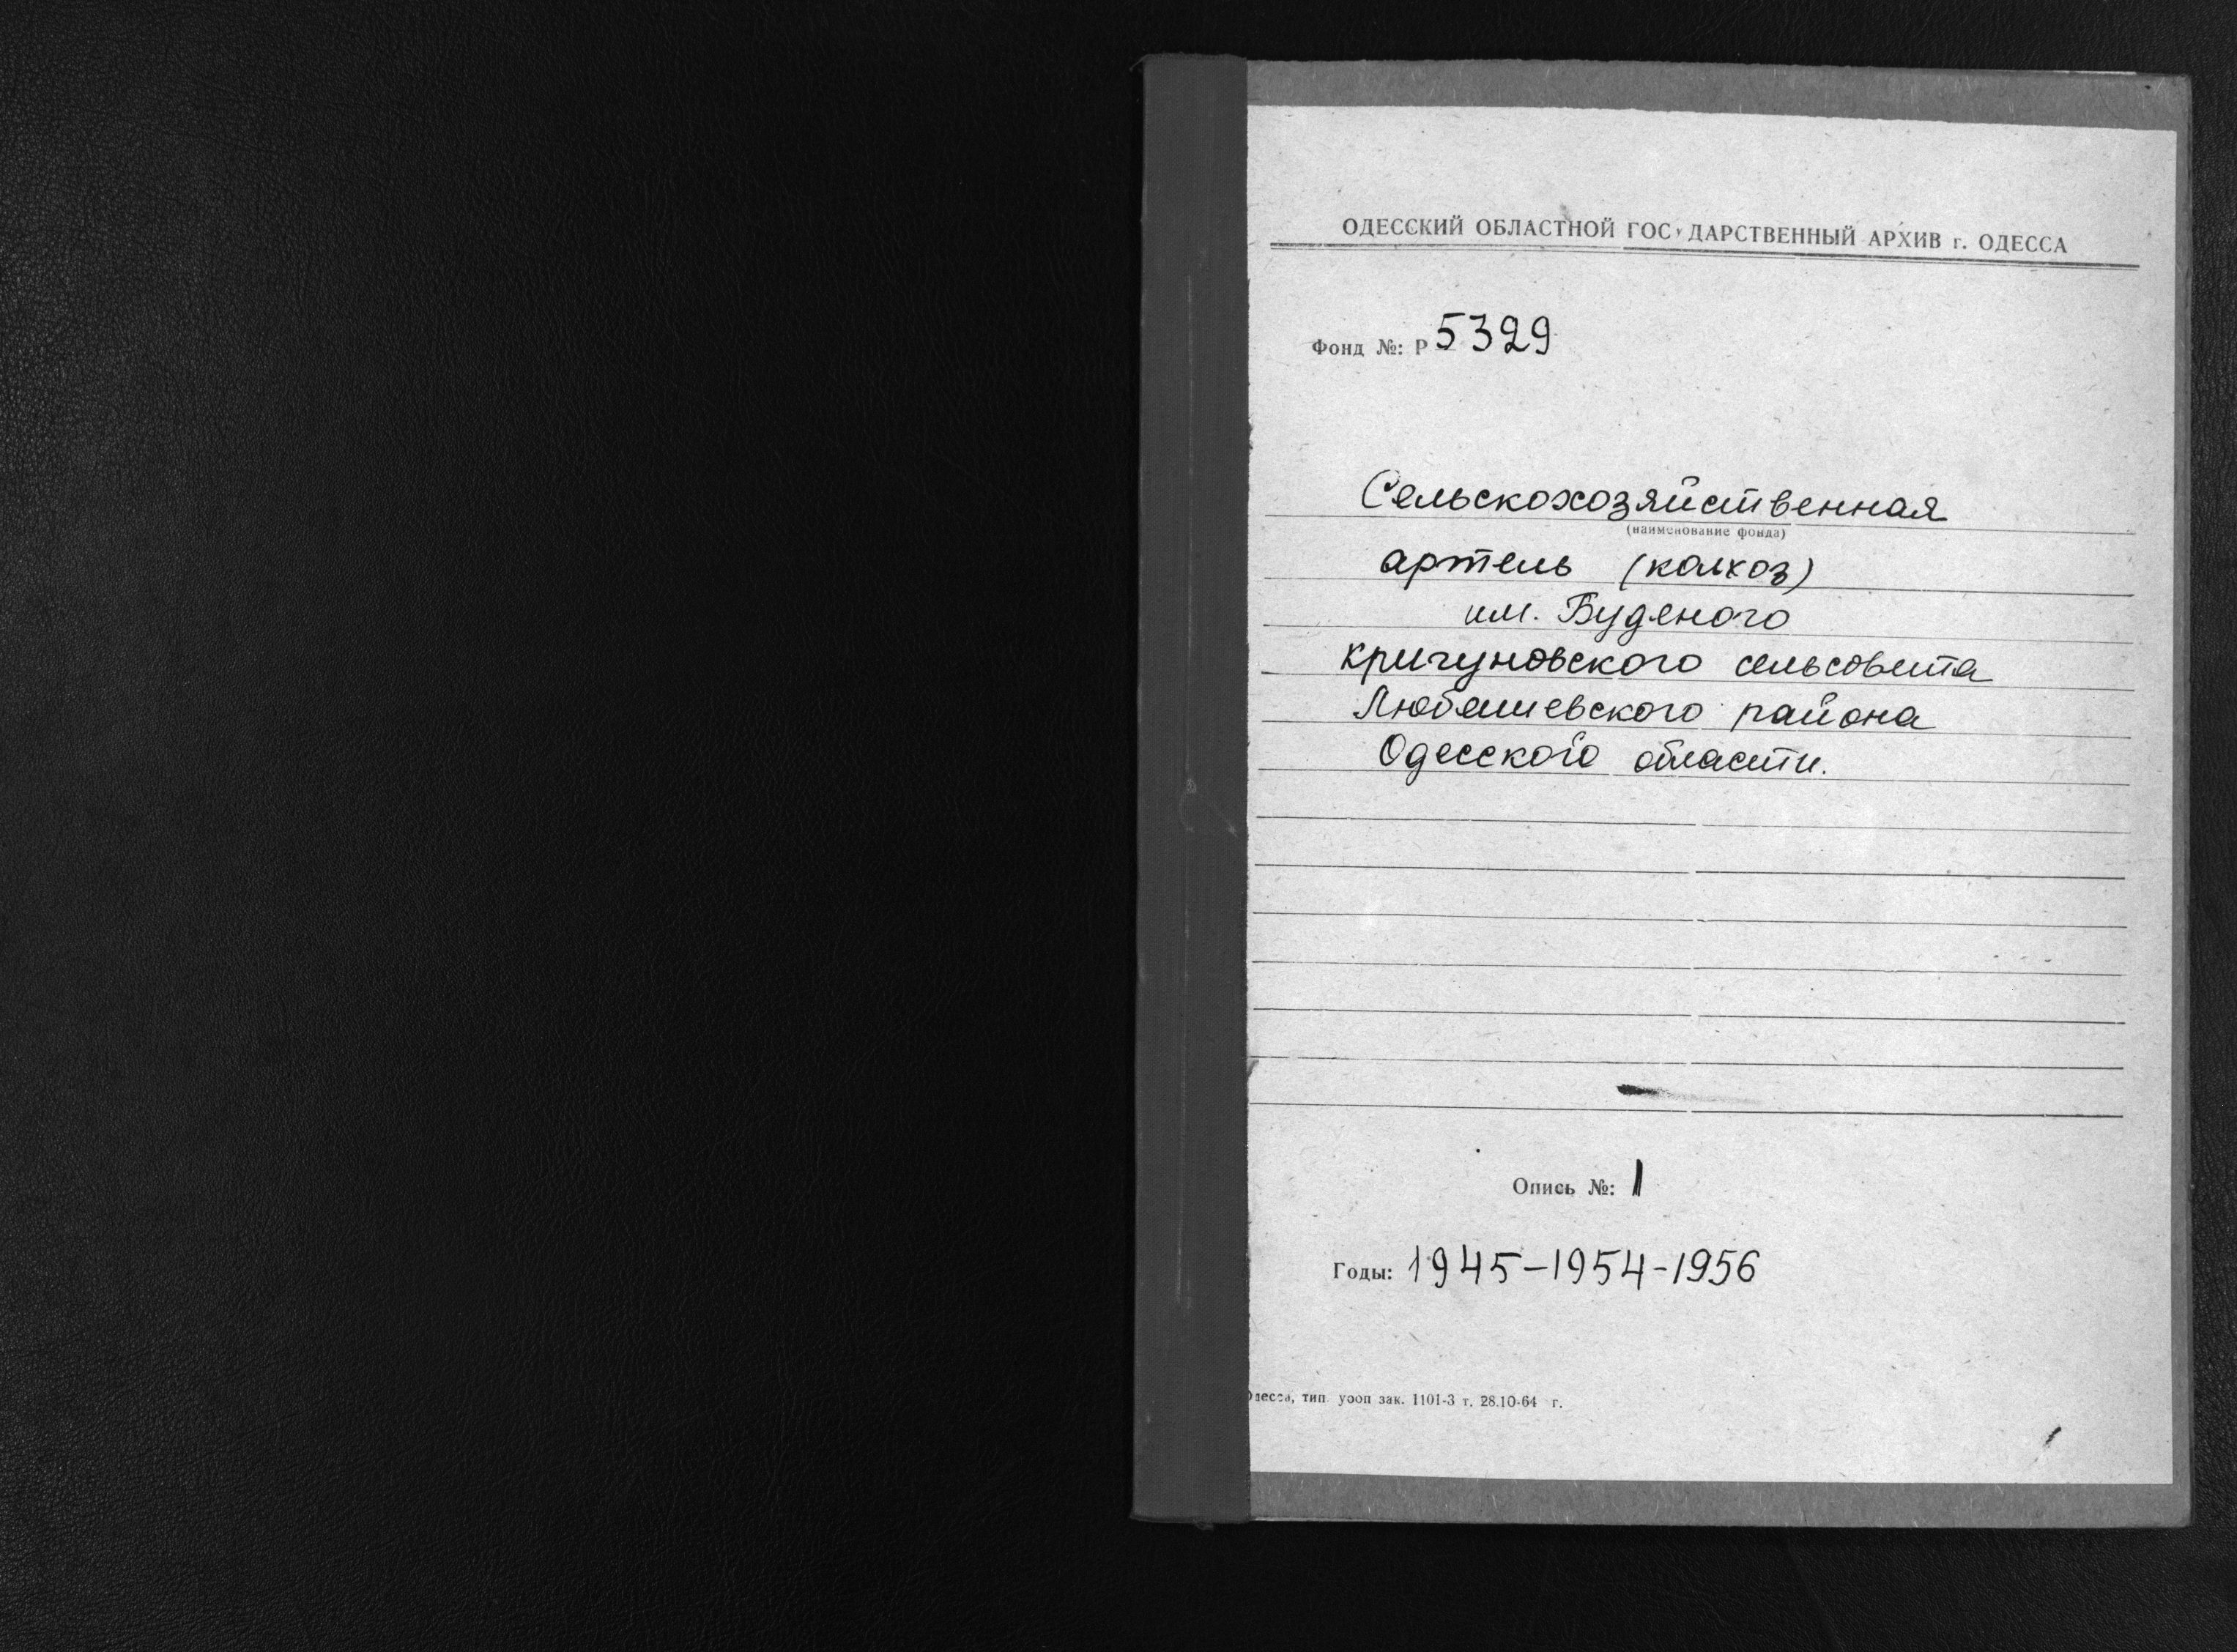 ОДЕССКИЙ ОБЛАСТНОЙ ГОСУДАРСТВЕННЫЙ АРХИВ г. ОДЕССА
Фонд №: Р 5329
Сельскохозяйственная
(наименование фонда)
артель (колхоз)
им. Буденого
Кричуновского сельсовета
Любашевского района
Одесской области.
Опись №: 1
Годы: 1945-1954-1956
Одесса, тип. уооп зак. 1101-3 т. 28.10-64 г.